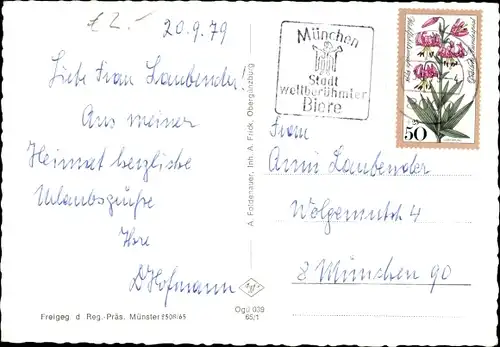 € 2.-
20.9.79
Liebe Frau Laubender!
Aus meiner
Heimat herzliche
Urlaubsgrüße
Ihre
D. Hofmann
Freigeg d Reg.-Präs. Münster 2508/65
A. Foldenauer, Inh. A. Frick, Obergünzburg
Ogü 039
65/1
München
Stadt
weltberühmter
Biere
50
Frau
Anni Laubender
4
8 München 90